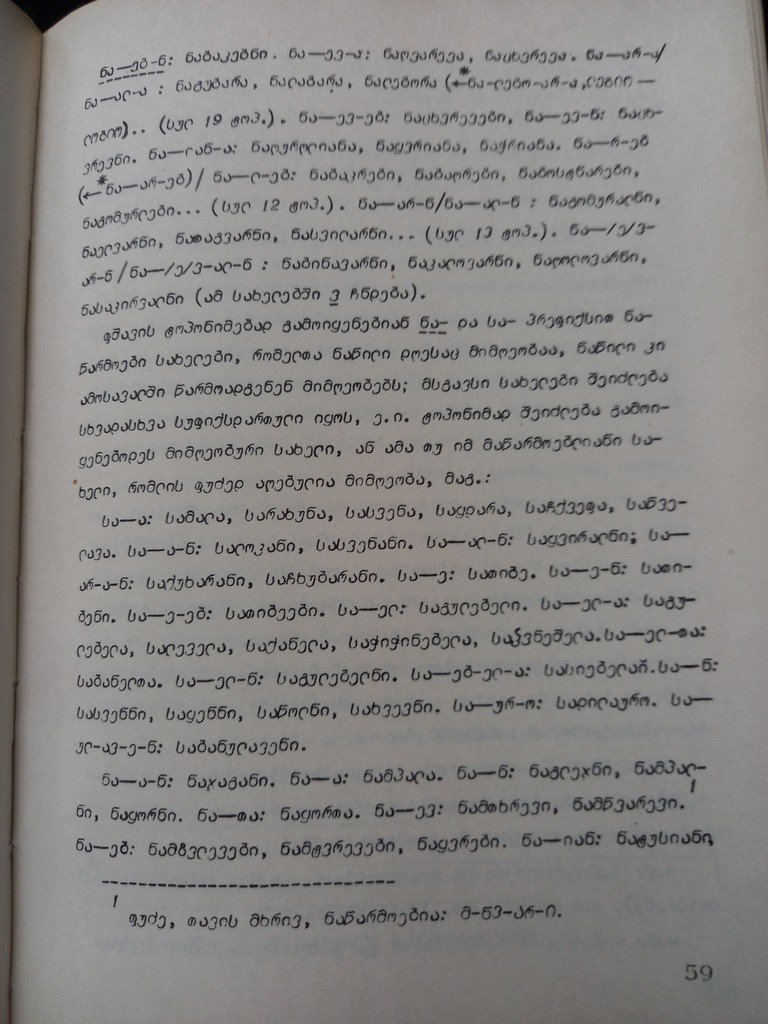 ნა—ებ-ნ: ნაბაკებნი. ნა—ევ-ა: ნაღვარევა, ნაცხვრევა. ნა—არ-ა/
ნა—ალ-ა : ნატუბარა, ნალაბარა, ნალებორა (←*ნა-ლებო-არ-ა,
.. (სულ 19 ტოპ.). ნა—ევ-ებ: ნაცხვრევები, ნა—ევ-ნ: ნაცხ-
ვრევნი. ნა—იან-ა: ნაყერიანა, ნაქრიანა. ნა—რ-ებ
(←*ნა—არ-ებ)/ ნა—ლ-ებ: ნაბაკრები, ნაბოსტნარები,
ნაგომურლები... (სულ 12 ტოპ.). ნა—არ-ნ/ნა—ალ-ნ : ნაგომურალნი,
ნაელვარნი, ნათაგვარნი, ნასვილარნი... (სულ 13 ტოპ.). ნა—/ე/ვ-
არ-ნ /ნა—/ე/ვ-ალ-ნ : ნაბინავარნი, ნაკალოვარნი,
ნასაკირვალნი (ამ სახელებში ვ ჩნდება).
ფშავის ტოპონიმებად გამოიყენებიან ნა- და სა- პრეფიქსით ნა-
წარმოები სახელები, რომელთა ნაწილი დღესაც მიმღეობაა, ნაწილი კი
ამოსავალში წარმოადგენენ მიმღეობებს; მსგავსი სახელები შეიძლება
სხვადასხვა სუფიქსდართული იყოს, ე.ი. ტოპონიმად შეიძლება გამოი-
ყენებოდეს მიმღეობური სახელი, ან ამა თუ იმ მაწარმოებლიანი სა-
ხელი, რომლის ფუძედ აღებულია მიმღეობა, მაგ.:
სა—ა: სამალა, სარახუნა, სასვენა, საყდარა, საჩქვეფა, საწვე-
ლავა. სა—ა-ნ: სალოკანი, სასვენანი. სა—ალ-ნ: საყვირალნი; სა—
არ-ა-ნ: საქუხარანი, საჩხუბარანი. სა—ე: სათიბე. სა—ე-ნ: სათი-
ბენი. სა—ე-ებ: სათიბეები. სა—ელ: საგულებელი. სა—ელ-ა: საგუ-
ლებელა, სალეველა, საქანელა, საჭიჭინებელა, სა—ელ-თა:
საბანელთა. სა—ელ-ნ: საგულებელნი. სა—ებ-ელ-ა: სა—ნ:
სასვენნი, საყენნი, საწოლნი, სახვევნი. სა—ურ-ო: სადილაურო. სა—
ულ-ავ-ე-ნ: საბანულავენი.
ნა—ა-ნ: ნაჯაგანი. ნა—ა: ნამპალა. ნა—ნ: ნაგლეჯნი, ნამპალ-
ნი, ნაყორნი. ნა—თა: ნაყორთა. ნა—ევ: ნამთხრევი, ნამწვარევი.1
ნა—ებ: ნამზვლევები, ნამტვრევები, ნაყვრები. ნა—იან: ნატუსიანი,
1 ფუძე, თავის მხრივ, ნაწარმოებია: მ-წვ-არ-ი.
59